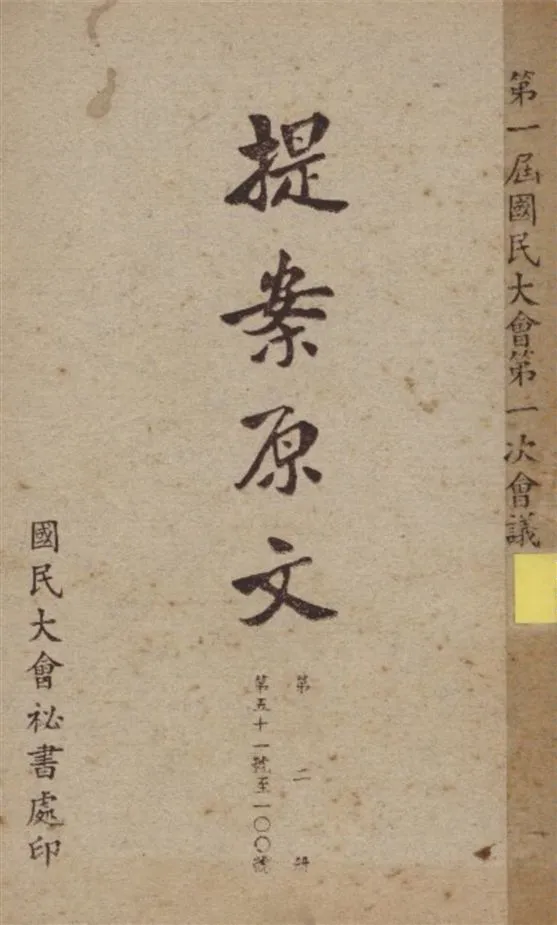 第一屆國民大會第一次會議
提案原文
第二册
第五十一號至一〇〇號
國民大會祕書處印